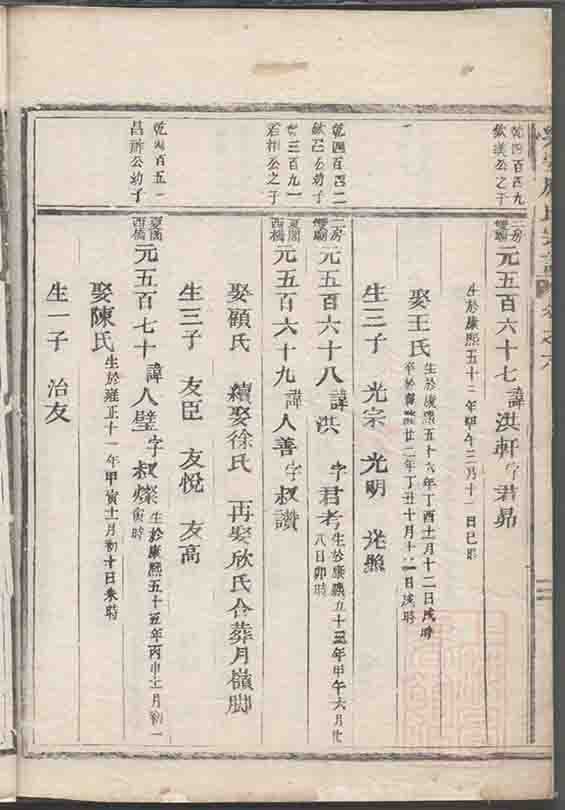 乾四百四九
公之子
二房
元五百六十七 諱洪軒 字君昴
生於康熙五十三年甲午三乃十一日巳時
娶王氏 生於康熙五十六年丁酉十一月十二日戌時
廿二年丁丑十月十二日戌時
生三子 光宗 光明 光照
乾四百四二
公幼子
二房
元五百六十八 諱洪 字君考 生於康熙五十三年甲午六月廿
八日卯時
三百九一
公之子
夏閣
西橋
元五百六十九 諱人善 字叔讚
娶顧氏 續娶徐氏 再娶欣氏合葬月嶺脚
生三子 友臣 友悅 友高
乾四百五一
昌 公幼子
夏閣
西橋
元五百七十 諱人璧 字叔燦 生於康熙五十五年丙申十一月初一
寅時
娶陳氏 生於雍正十一年甲寅十一月初十日未時
生一子 治友